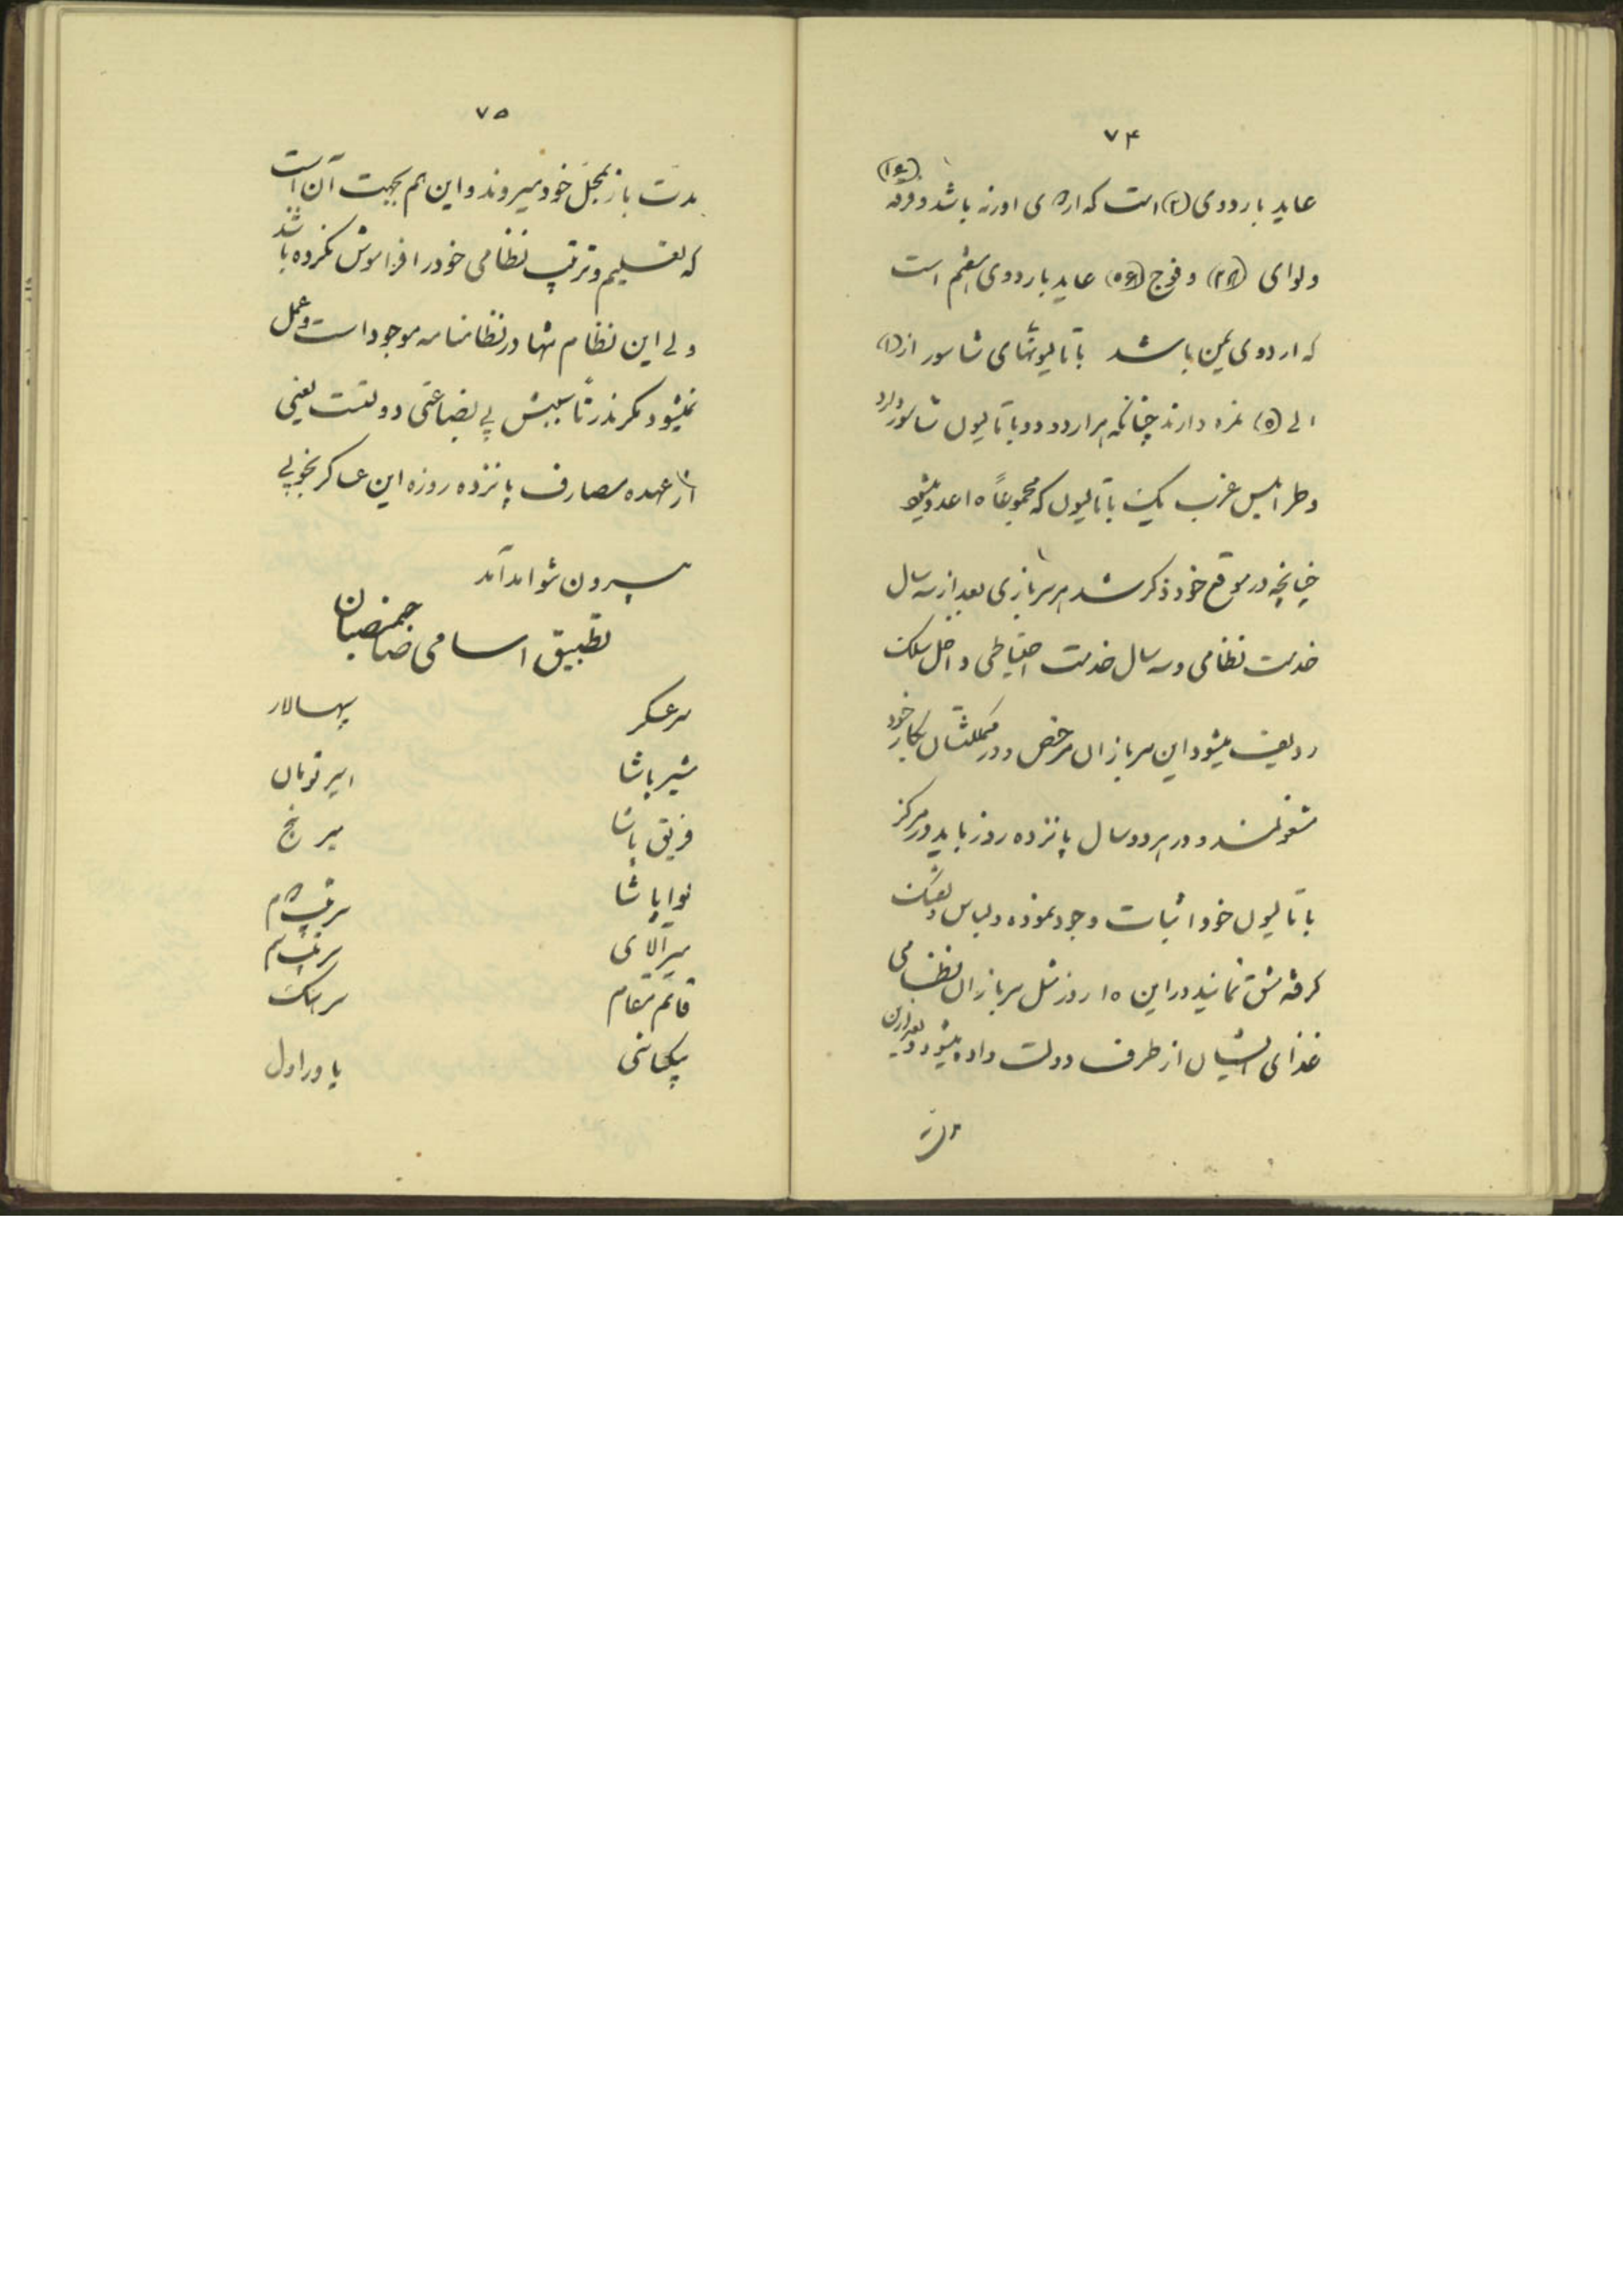 ۷۴
عاید باردوی (۲) است که اردوی اورنه باشد و فرقه (۱۴)
ولوای (۲۸) و فوج (۵۶) عاید باردوی هفتم است
که اردوی یمن باشد باتالیونهای شاسور از (۱)
الی (۵) نمره دارند چنانکه هر اردو دو باتالیون شاسور دارد
و طرابلس غرب یک باتالیون که مجموعاً ۱۵ عدد میشود
چنانچه در موقع خود ذکر شد هر سربازی بعد از سه سال
خدمت نظامی و سه سال خدمت احتیاطی داخل سلک
ردیف میشود این سربازان مرخص و در مملکتشان بکار خود
مشغولند و در هر دو سال پانزده روز باید در مرکز
باتالیون خود اثبات وجود نموده ولباس و تفنگ
گرفته مشق نمایند در این ۱۵ روز مثل سربازان نظامی
غذای ایشان از طرف دولت داده میشود و بعد از این
مدت
۷۵
مدت باز بمحل خود میروند و این هم بجهت آن است
که تعلیم و ترتیب نظامی خود را فراموش نکرده باشند
ولی این نظام تنها در نظامنامه موجود است و عمل
نمیشود مگر ندرتاً سببش بی بضاعتی دولتست یعنی
از عهده مصارف پانزده روزه این عساکر بخوبی
بیرون نتواند آمد
تطبیق اسامی صاحبمنصبان
سرعسکر سپهسالار
مشیر پاشا امیر تومان
فریق پاشا میر پنج
لوا پاشا سرتیپ ۲م
میرآلای سرتیپ ۳م
قائم مقام سرهنگ
بیکباشی یاور اول